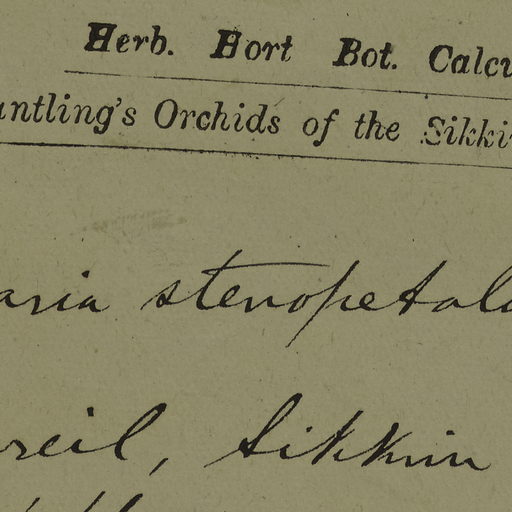 Herb. Hort Bot. Calcu
antling's Orchids of the Sikki
aria stenopetala
reil, Sikkim